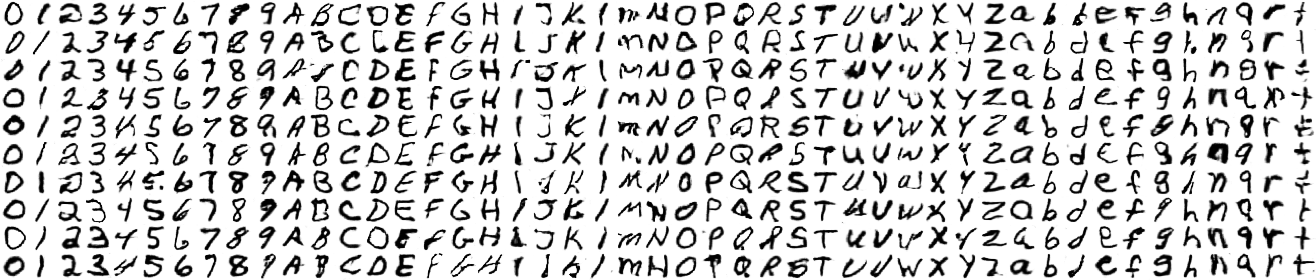 0 1 2 3 4 5 6 7 8 9 A B C D E F G H I J K l m N O P Q R S T U U W X Y Z a b d e f g h n q r t
0 1 2 3 4 5 6 7 8 9 A B C D E F G H I J K l m N O P Q R S T U V W X Y Z a b d e f g h n q r t
0 1 2 3 4 5 6 7 8 9 A B C D E F G H I J K l M N O P Q R S T U V W X Y Z a b d e f g h n q r t
0 1 2 3 4 5 6 7 8 9 A B C D E F G H I J K l m N O P Q R S T U V W X Y Z a b d e f g h n q r t
0 1 2 3 4 5 6 7 8 9 A B C D E F G H I J K l m N O P Q R S T U V W X Y Z a b d e f g h n q r t
0 1 2 3 4 5 6 7 8 9 A B C D E F G H I J K l m N O P Q R S T U V W X Y Z a b d e f g h n q r t
0 1 2 3 4 5 6 7 8 9 A B C D E F G H I J K l M N O P Q R S T U V W X Y Z a b d e f g h n q r t
0 1 2 3 4 5 6 7 8 9 A B C D E F G H I J K l M N O P Q R S T U V W X Y Z a b d e f g h n q r t
0 1 2 3 4 5 6 7 8 9 A B C D E F G H I J K l M N O P Q R S T U V W X Y Z a b d e f g h n q r t
0 1 2 3 4 5 6 7 8 9 A B C D E F G H I J K l M N O P Q R S T U V W X Y Z a b d e f g h n q r t